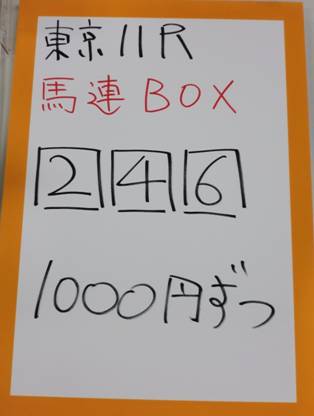 東京11R
馬連BOX
2 4 6
1000円ずつ